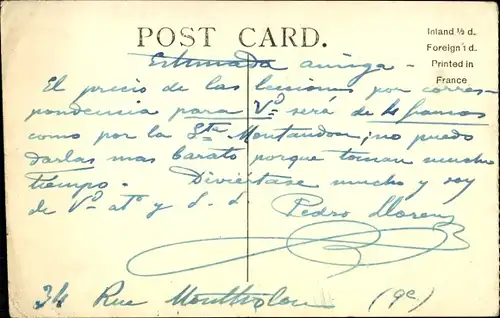 POST CARD.
Inland ½ d.
Foreign 1 d.
Printed in
France
Estimada amiga -
El precio de las lecciones por corres-
pondencia para Vº será de 4 francos
como por la Sta Montandon; no puedo
darlas mas barato porque toman mucho
tiempo. Diviértase mucho y soy
de Vº atº y s. s. Pedro Llorens
34 Rue Montholon (9e)